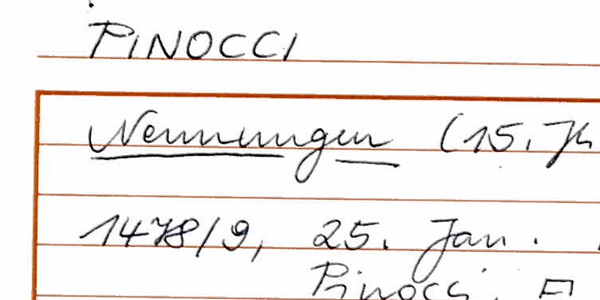 PINOCCI
Nennungen (15. Jh
1478/9, 25. Jan.
Pinocci, Fl